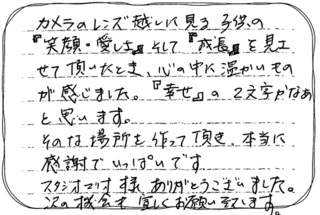 カメラのレンズ越しに見る子供の
『笑顔・愛しさ』そして『成長』を見
せて頂いたとき、心の中に温かいもの
が感じました。『幸せ』の2文字かなあ
と思います。
そのな場所を作って頂き、本当に
感謝でいっぱいです。
スタジオマリオ様、ありがとうございました。
次の機会も宜しくお願い致します。